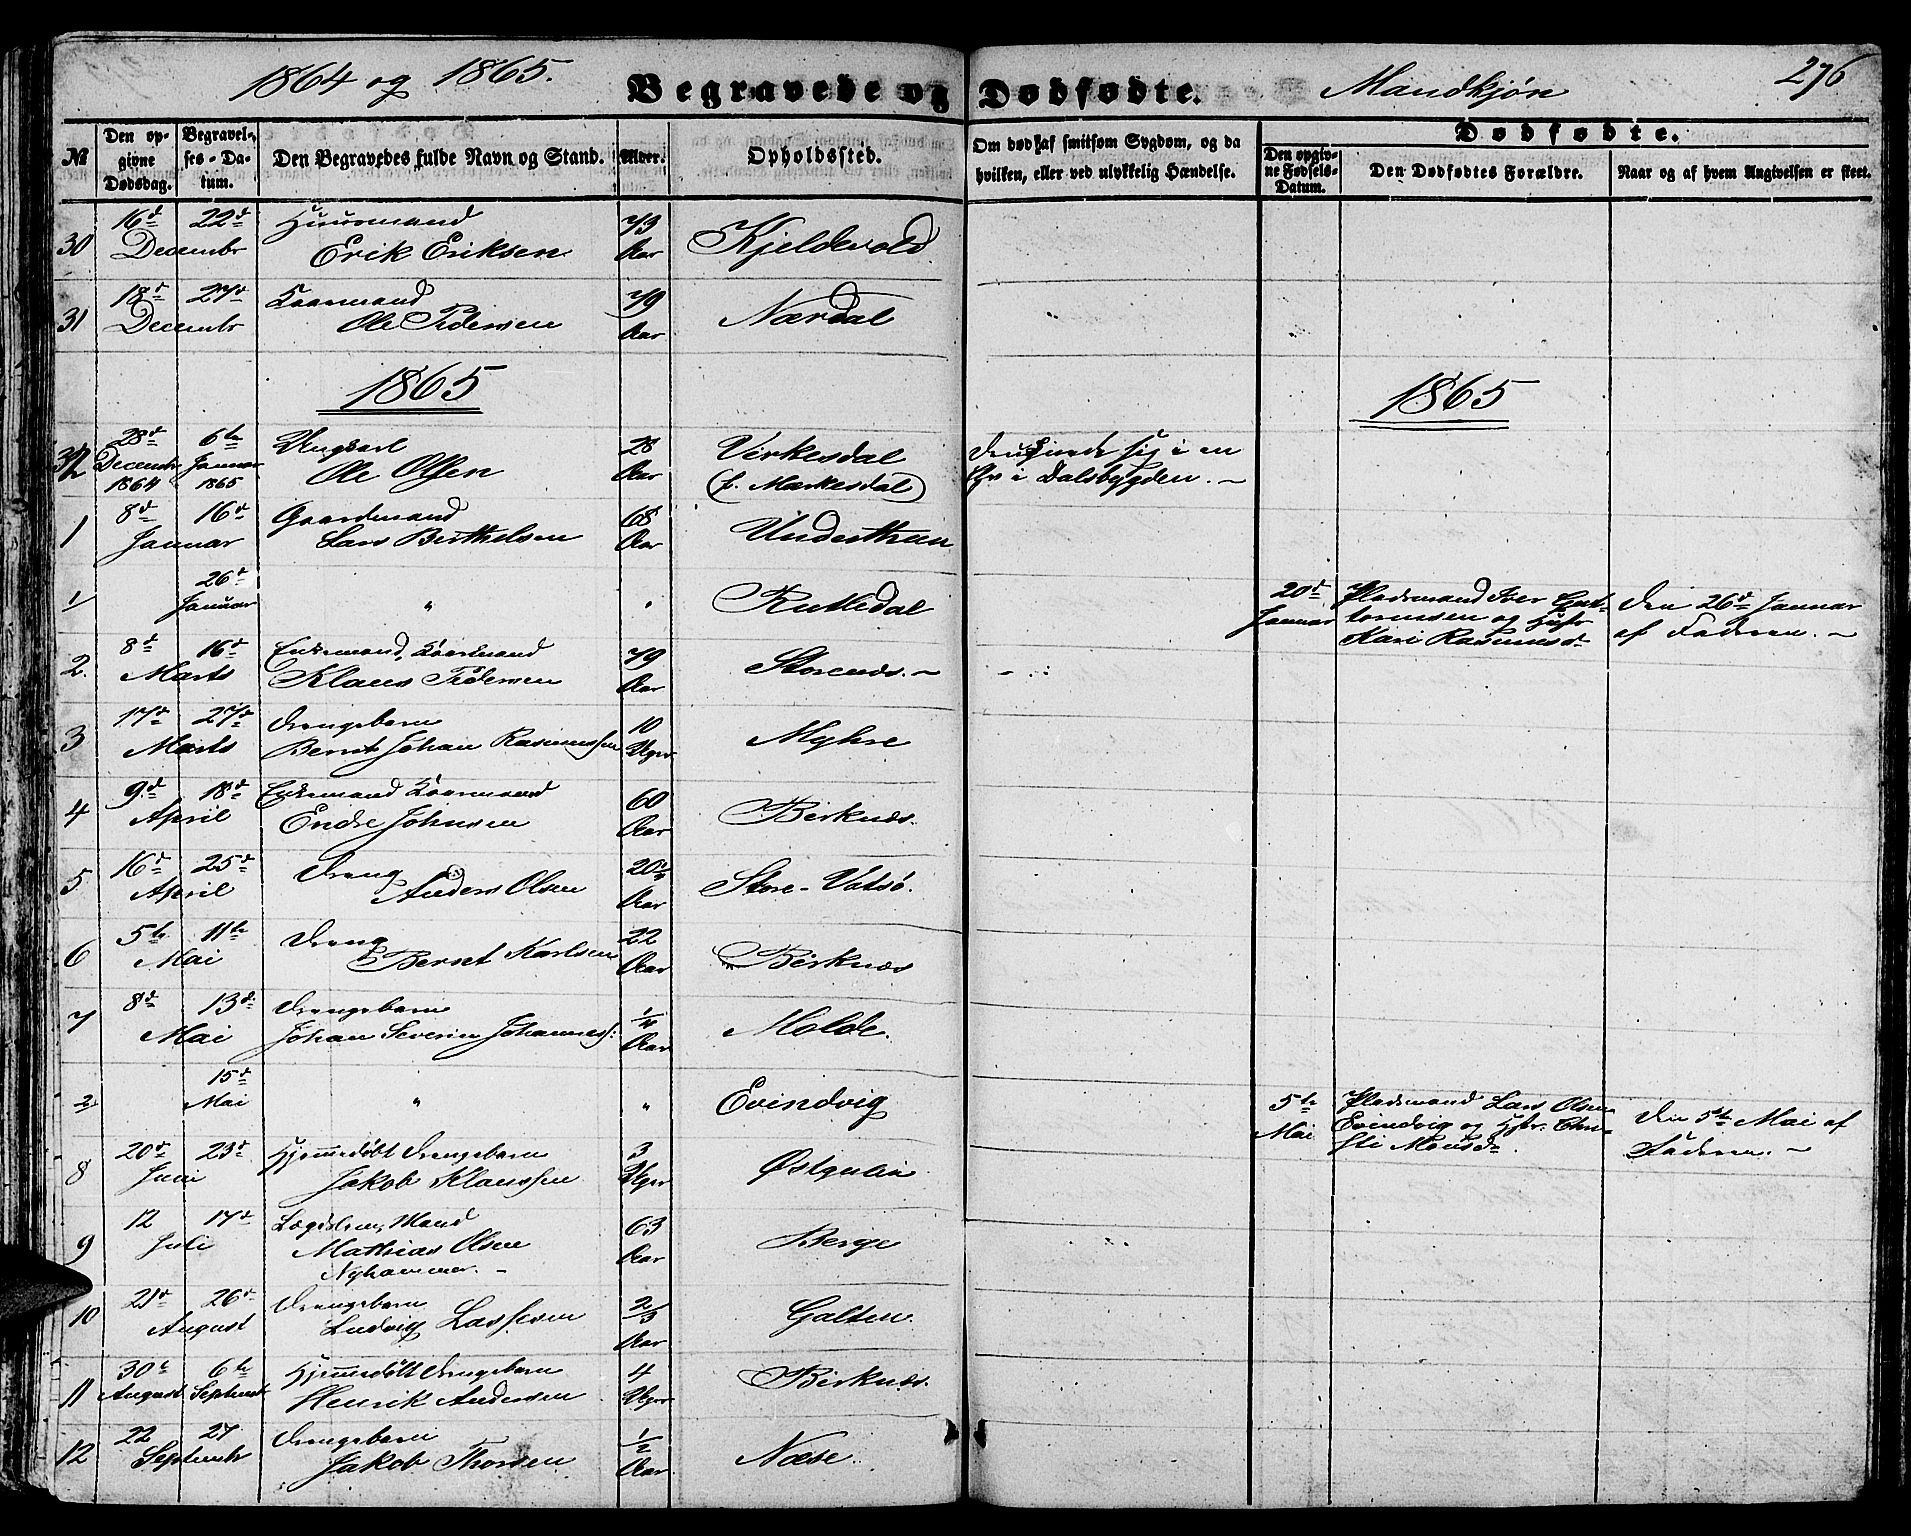 1864 og 1865.
Begravede og Dødfødte.
Mandkjøn
276
No
Den opgivne Dødsdag.
Begravelses-Datum.
Den Begravedes fulde Navn og Stand.
Alder.
Opholdssted.
Om død af smitsom Sygdom, og da hvilken, eller ved ulykkelig Hændelse.
Dødfødte.
Den opgivne Fødsels-Datum.
Den Dødfødtes Forældre.
Naar og af hvem Angivelsen er skeet.
30 16d 22d Decembr Huusmand Erik Eriksen 73 Aar Kjeldevold
31 18d 27d Decembr Kaarmand Ole Pedersen 79 Aar Nærdal
1865
1865
32 28d Decembr 1864 6te Januar 1865 Ungkarl Ole Olsen 28 Aar Virkesdal (f. Mærkesdal) sig i en i Dalsbygden.
1 8d 16d Januar Gaardmand Lars Berthelsen 68 Aar Underthun
1/ 26d Januar " " Rutledal 20d Januar Pladsmand Iver og Hustr Kari Rasmusd Den 26d Januar af Faderen.
2. 8d 16d Marts Enkemand, Kaarmand Klaus Pedersen 79 Aar Storenæs.
3 17d 27d Marts Drengebarn Bernt Johan Rasmussen 10 Uger Myhre
4 9d 18d April Enkemand Kaarmand Endre Johnsen 60 Aar Birknæs.
5 16d 25d April Dreng Anders Olsen Aar Store-Vatsø.
6 5te 11te Mai Dreng Bernt Karlsen 22 Aar Birknæs
7 8d 13d Mai Drengebarn Johan Severin Johanness: 1/4 Aar Molde.
2/ 15d Mai " " Evindvig 5te Mai Pladsmand Lars Olsen Evindvig og Hstr. Christi Monsd. Den 5te Mai af Faderen.
8 20d 23d Juni Hjemmedøbt Drengebarn Jakob Klaussen 3 Uger Østgulen
9 12 17d Juli Lægdslem, Mand Mathias Olsen Nyhammer. 63 Aar Berge
10 21d 26d August Drengebarn Ludvig Lassesen 2/3 Aar Galten.
11 30te August 6te Septembr Hjemmedøbt Drengebarn Henrik Andersen 4 Uger Birknæs.
12 22 27 Septembr Drengebarn Jakob Thorsen 1/2 Aar Næse.